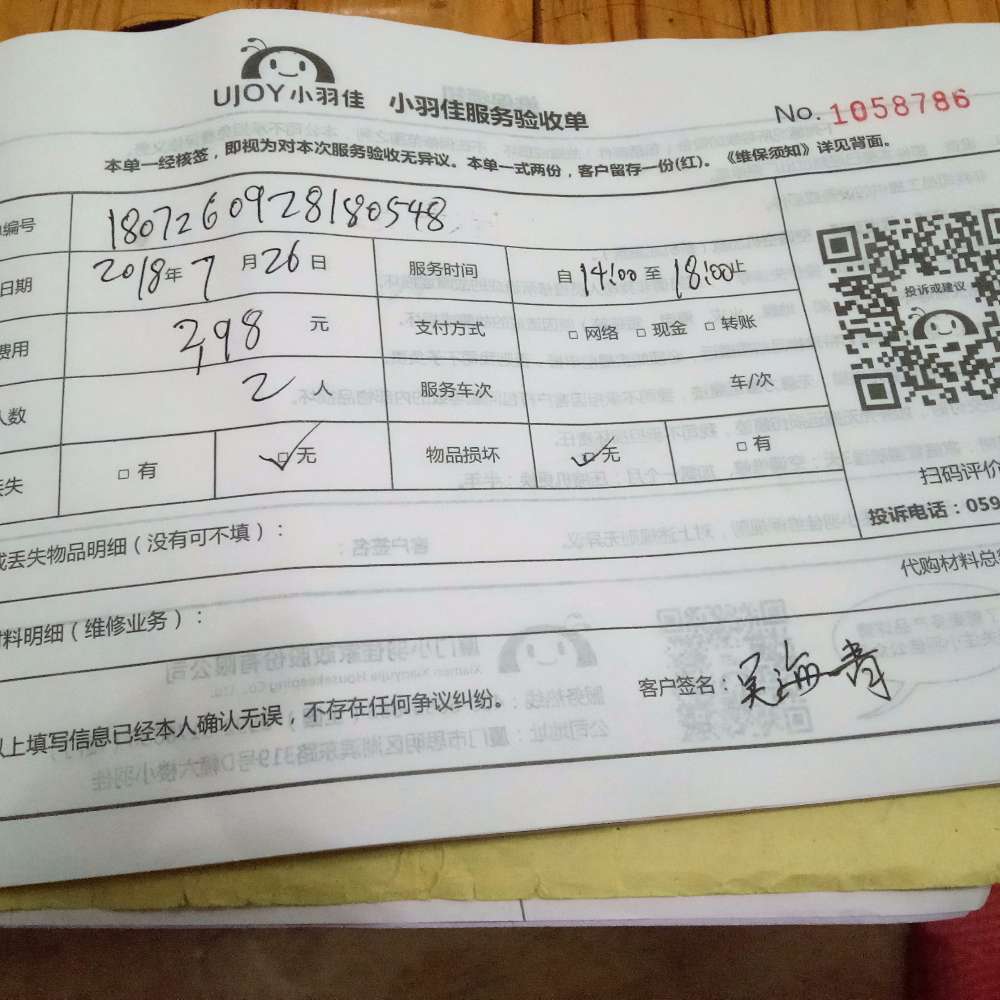 UJOY小羽佳 小羽佳服务验收单 No. 1058786
本单一经核签，即视为对本次服务验收无异议。本单一式两份，客户留存一份(红)。《维保须知》详见背面。
编号 1807260928180548
日期 2018年7月26日 服务时间 自14:00至18:00止
费用 298元 支付方式 □网络 □现金 □转账
人数 2人 服务车次 车/次
丢失 □有 □无 物品损坏 □无 □有
投诉或建议
扫码评价
投诉电话：059
或丢失物品明细（没有可不填）：
代购材料总
材料明细（维修业务）：
以上填写信息已经本人确认无误，不存在任何争议纠纷。 客户签名：吴海青